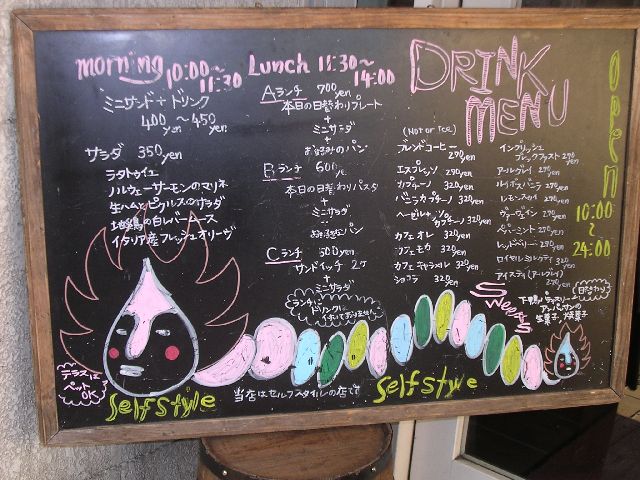 morning 10:00~11:30
ミニサンド+ドリンク
400yen~450yen
サラダ 350yen
ラタトゥイユ
ノルウェーサーモンのマリネ
生ハムとピクルスのサラダ
地鶏の白レバームース
イタリア産フレッシュオリーヴ
Lunch 11:30~14:00
Aランチ 700yen
本日の日替わりプレート
+
ミニサラダ
+
お好みのパン
Bランチ 600ye.
本日の日替わりパスタ
+
ミニサラダ
+
お好きなパン
Cランチ 500yen
サンドイッチ 2ケ
+
ミニサラダ
ランチにドリンクは付いておりません
DRINK MENU
(Hot or Ice)
ブレンドコーヒー 290yen
エスプレッソ 270yen
カプチーノ 320yen
バニラカプチーノ 320yen
ヘーゼルナッツカプチーノ 320yen
カフェオレ 320yen
カフェモカ 320yen
カフェキャラメル 320yen
ショコラ 320yen
イングリッシュブレックファスト 290yen
アールグレイ 290yen
ルイボスバニラ 290yen
レモンスカイ 290yen
ヴァーヴェイン 290yen
ペパーミント 290yen
レッドベリー 290yen
ロイヤルミルクティ 320yen
アイスティ(アールグレイ) 290yen
Open
10:00
~
24:00
Sweets
(日替わり)
生菓子 焼菓子
テラスはペットOK
self style
当店はセルフスタイルの店です
self style